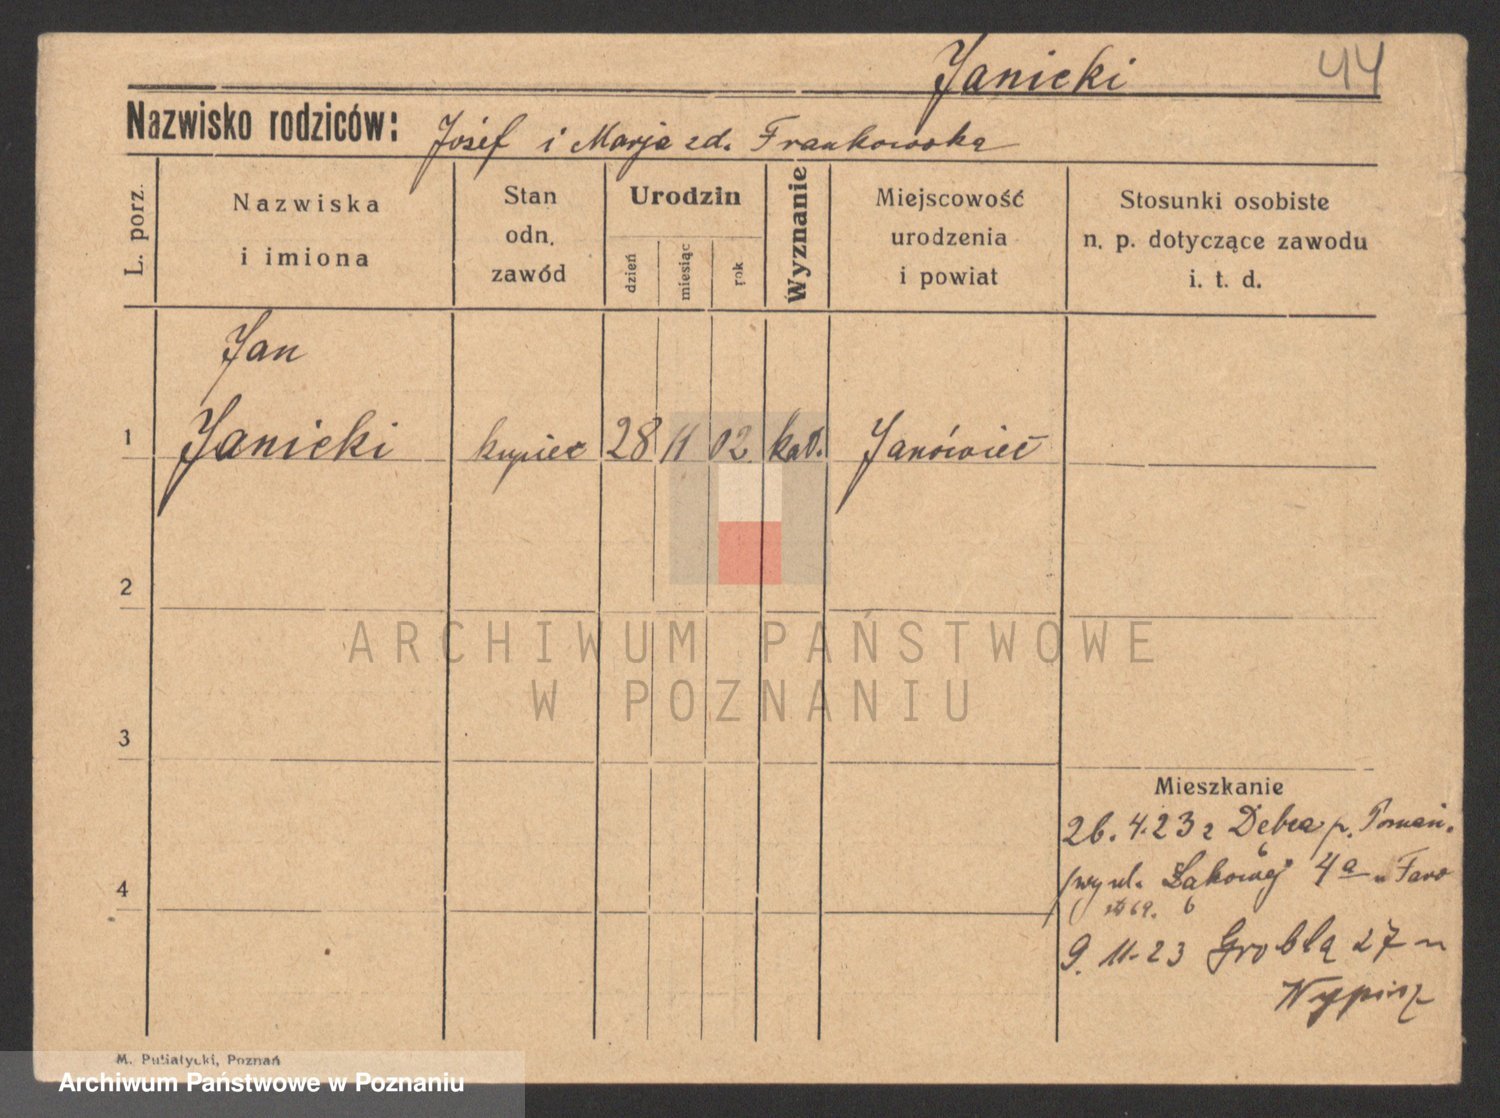 Janicki 44
Nazwisko rodziców: Józef i Marja zd. Frankowska
L. porz.
Nazwiska
i imiona
Stan
odn.
zawód
Urodzin
dzień
miesiąc
rok
Wyznanie
Miejscowość
urodzenia
i powiat
Stosunki osobiste
n. p. dotyczące zawodu
i. t. d.
Jan
1 Janicki kupiec 28 11 02. kat. Janówiec
2
ARCHIWUM PAŃSTWOWE
W POZNANIU
3
Mieszkanie
26. 4. 23 z Dębca p. Poznań.
ul. Łąkowej 4a
4
9. 11. 23 Grobla 27
M. Putiatycki, Poznań
Archiwum Państwowe w Poznaniu